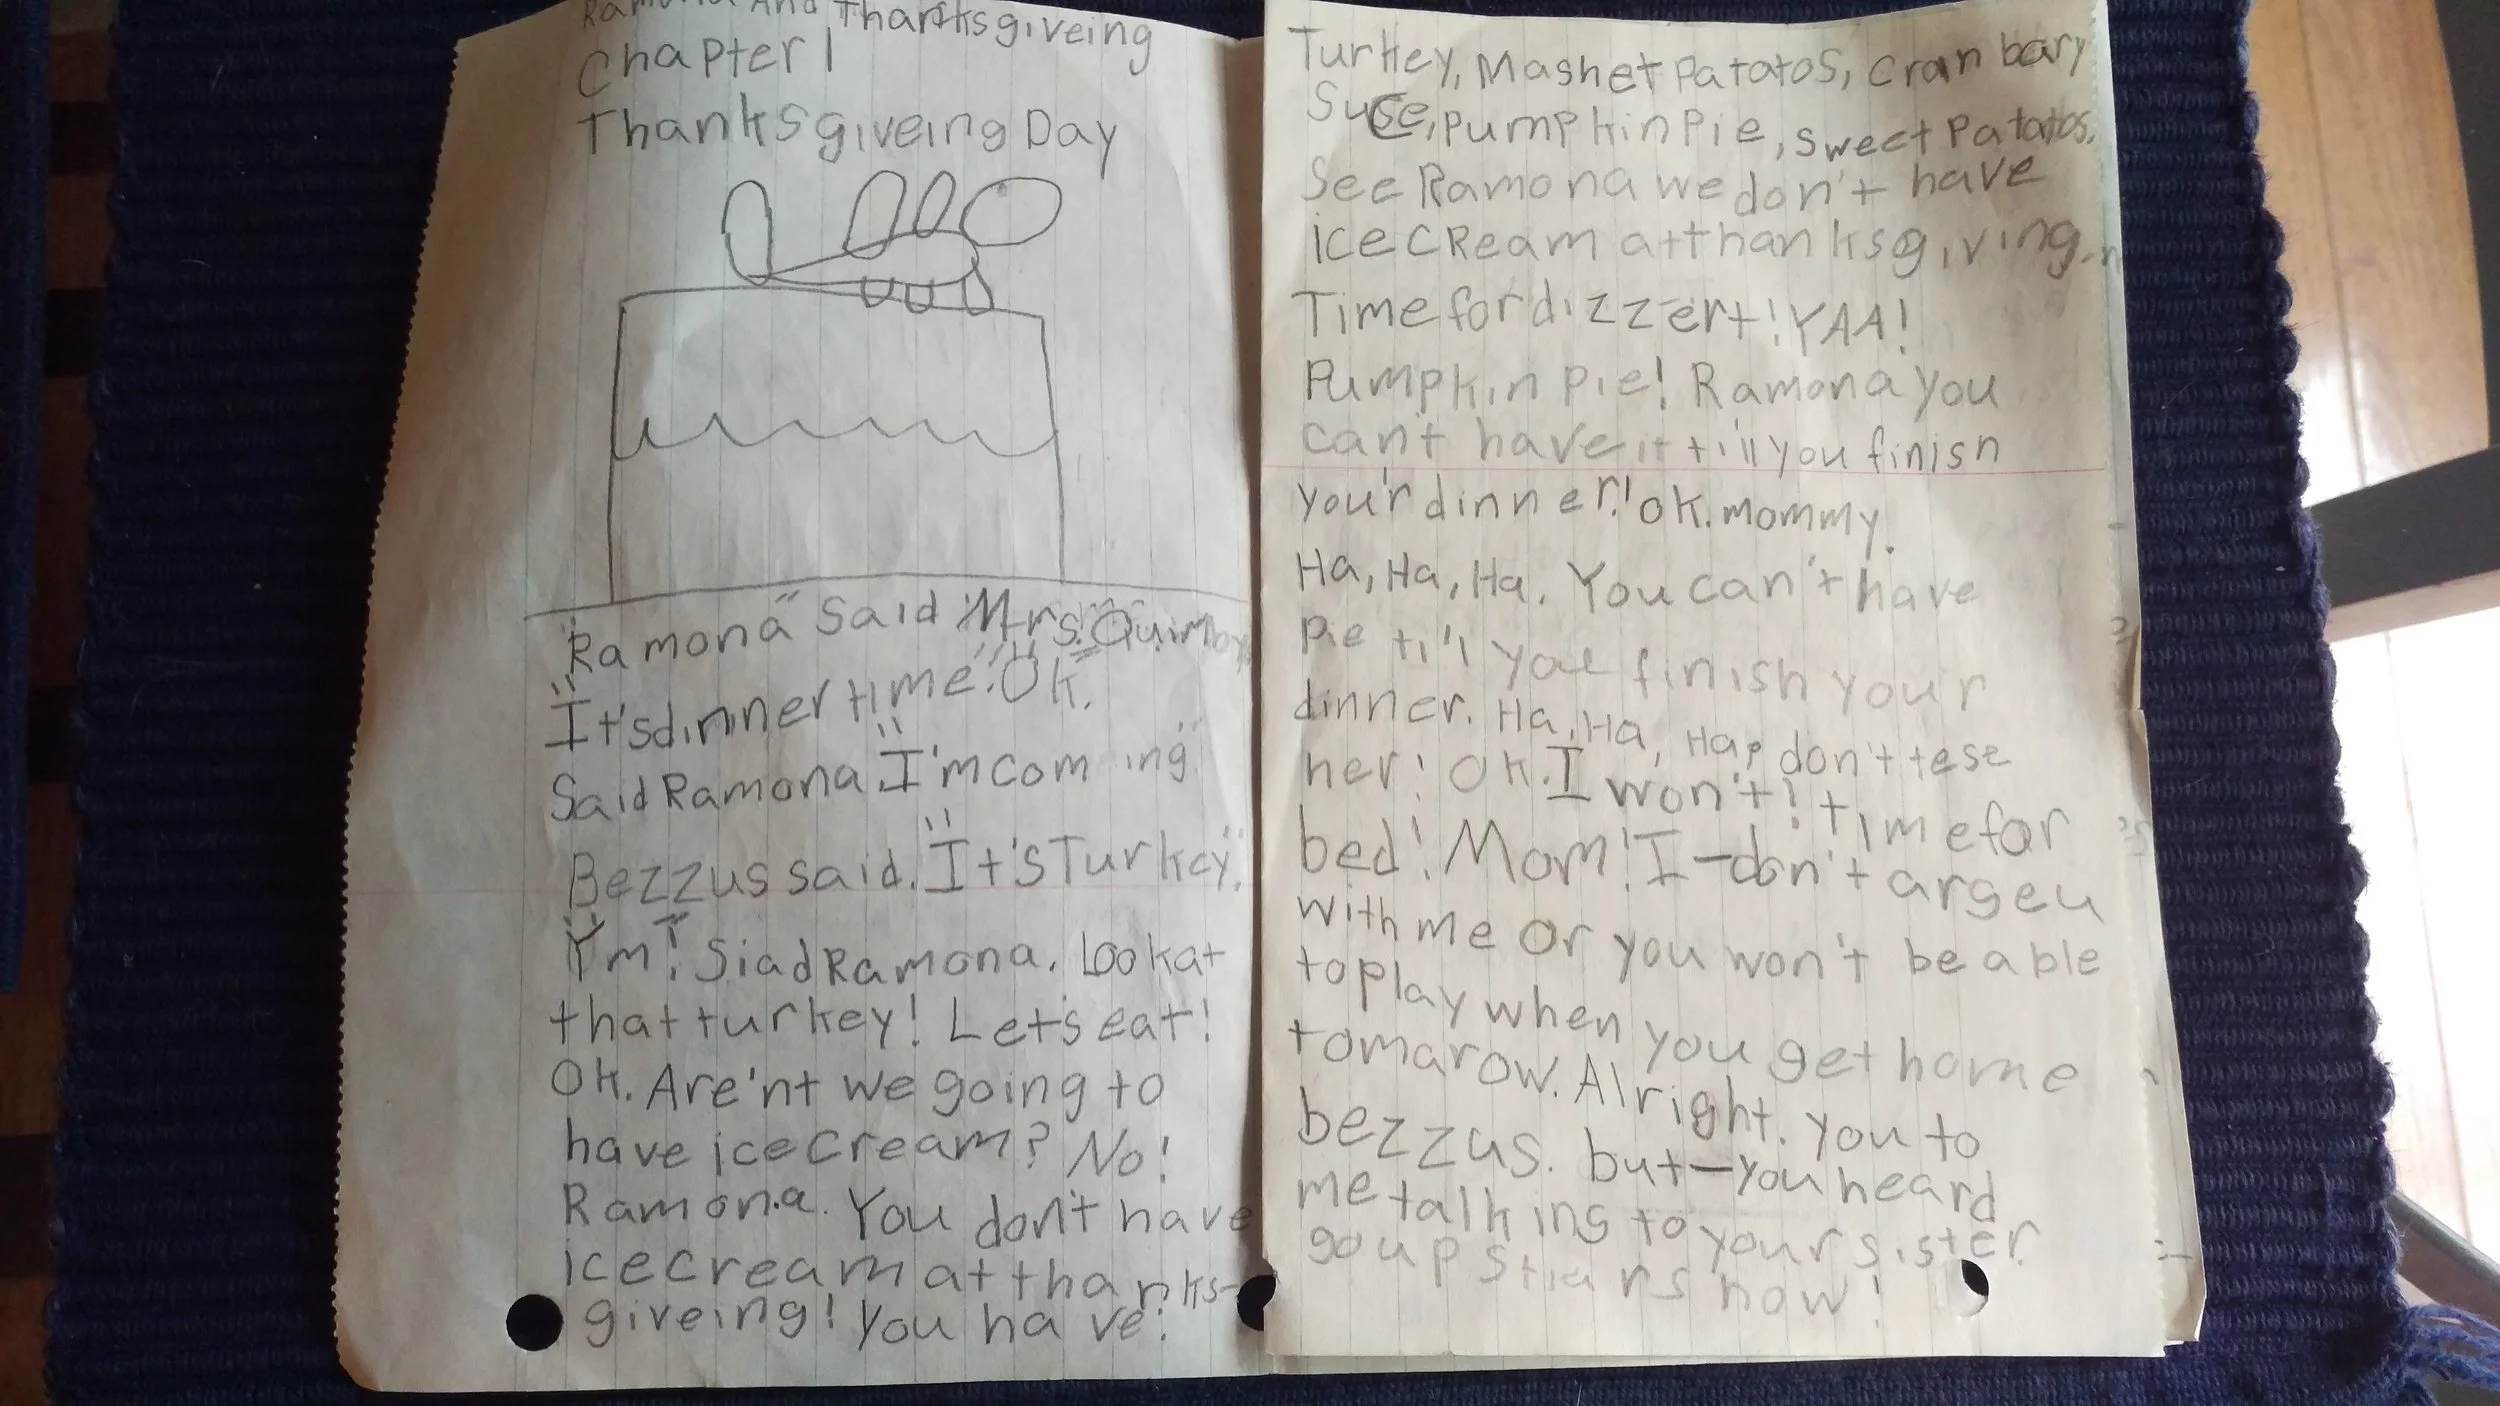 Ramona And Thanksgiveing
Chapter 1
Thanksgiveing Day
"Ramona" Said Mrs. Quimby
"It'sdinner time". "Ok".
Said Ramona. "I'm coming"
Bezzus said. "It's Turkey".
"Ym"! Siad Ramona. Look at
that turkey! Let's eat!
Ok. Are'nt we going to
have ice cream? No!
Ramona. You don't have
ice cream at thanks-
giveing! You have:
Turkey, Mashet Patatos, Cran bary
Suce, pumpkin Pie, sweet Patatos.
See Ramona we don't have
ice cream at thanksgiving.
Time for dizzert! YAA!
Pumpkin Pie! Ramona you
can't have it ti'll you finish
you'r dinner! ok. mommy.
Ha, Ha, Ha. You can't have
Pie ti'll you finish your
dinner. Ha, Ha, Ha, don't tese
her! Ok. I won't! time for
bed! Mom! I - don't argeu
with me or you won't be able
to play when you get home
tomarow. Alright. you to
bezzus. but - you heard
me talking to your sister
go up stiars now!